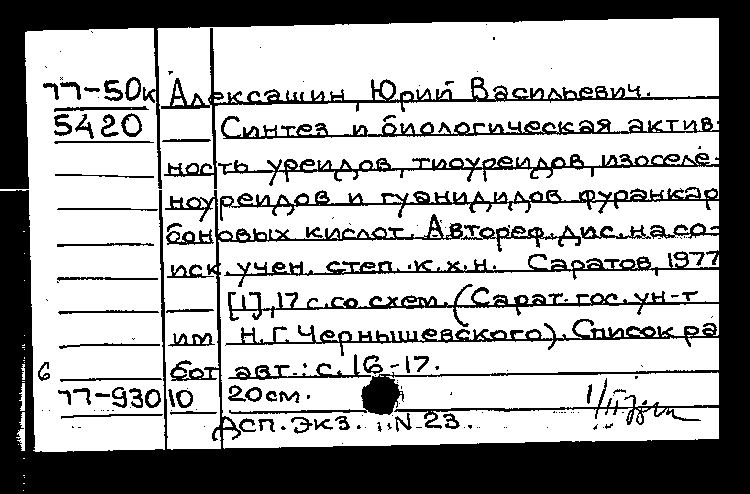 77-50к Алексашин, Юрий Васильевич.
5420 Синтез и биологическая актив-
ность уреидов, тиоуреидов, изоселе-
ноуреидов и гуанидидов фуранкар
боновых кислот. Автореф. дис. на со-
иск. учен. степ. к.х.н. Саратов, 1977
[1], 17 с. со схем. (Сарат. гос. ун-т
им Н.Г. Чернышевского). Список ра
6 бот авт.: с. 16-17.
77-93010 20 см.
Дсп. экз. N 23.